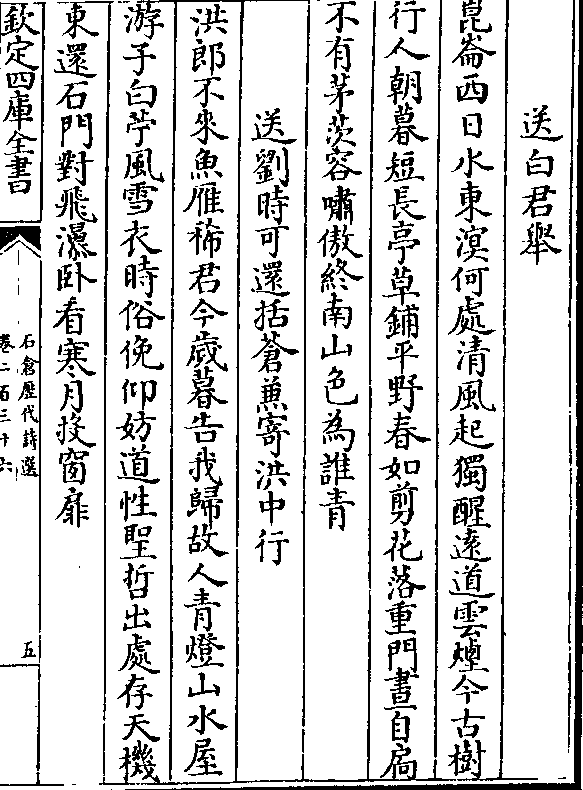 送白君舉
崑崙西日水東溟何處清風起獨醒遠道雲煙今古樹
行人朝暮短長亭草鋪平野春如剪花落重門晝自扃
不有茅茨容嘯傲終南山色為誰青
送劉時可還括蒼蒹寄洪中行
洪郎不來魚雁稀君今歲暮告我歸故人青燈山水屋
游子白苧風雪衣時俗俛仰妨道性聖哲出處存天機
東還石門對飛瀑卧看寒月投窗扉
欽定四庫全書
石倉歷代詩選
卷二百三十六
五